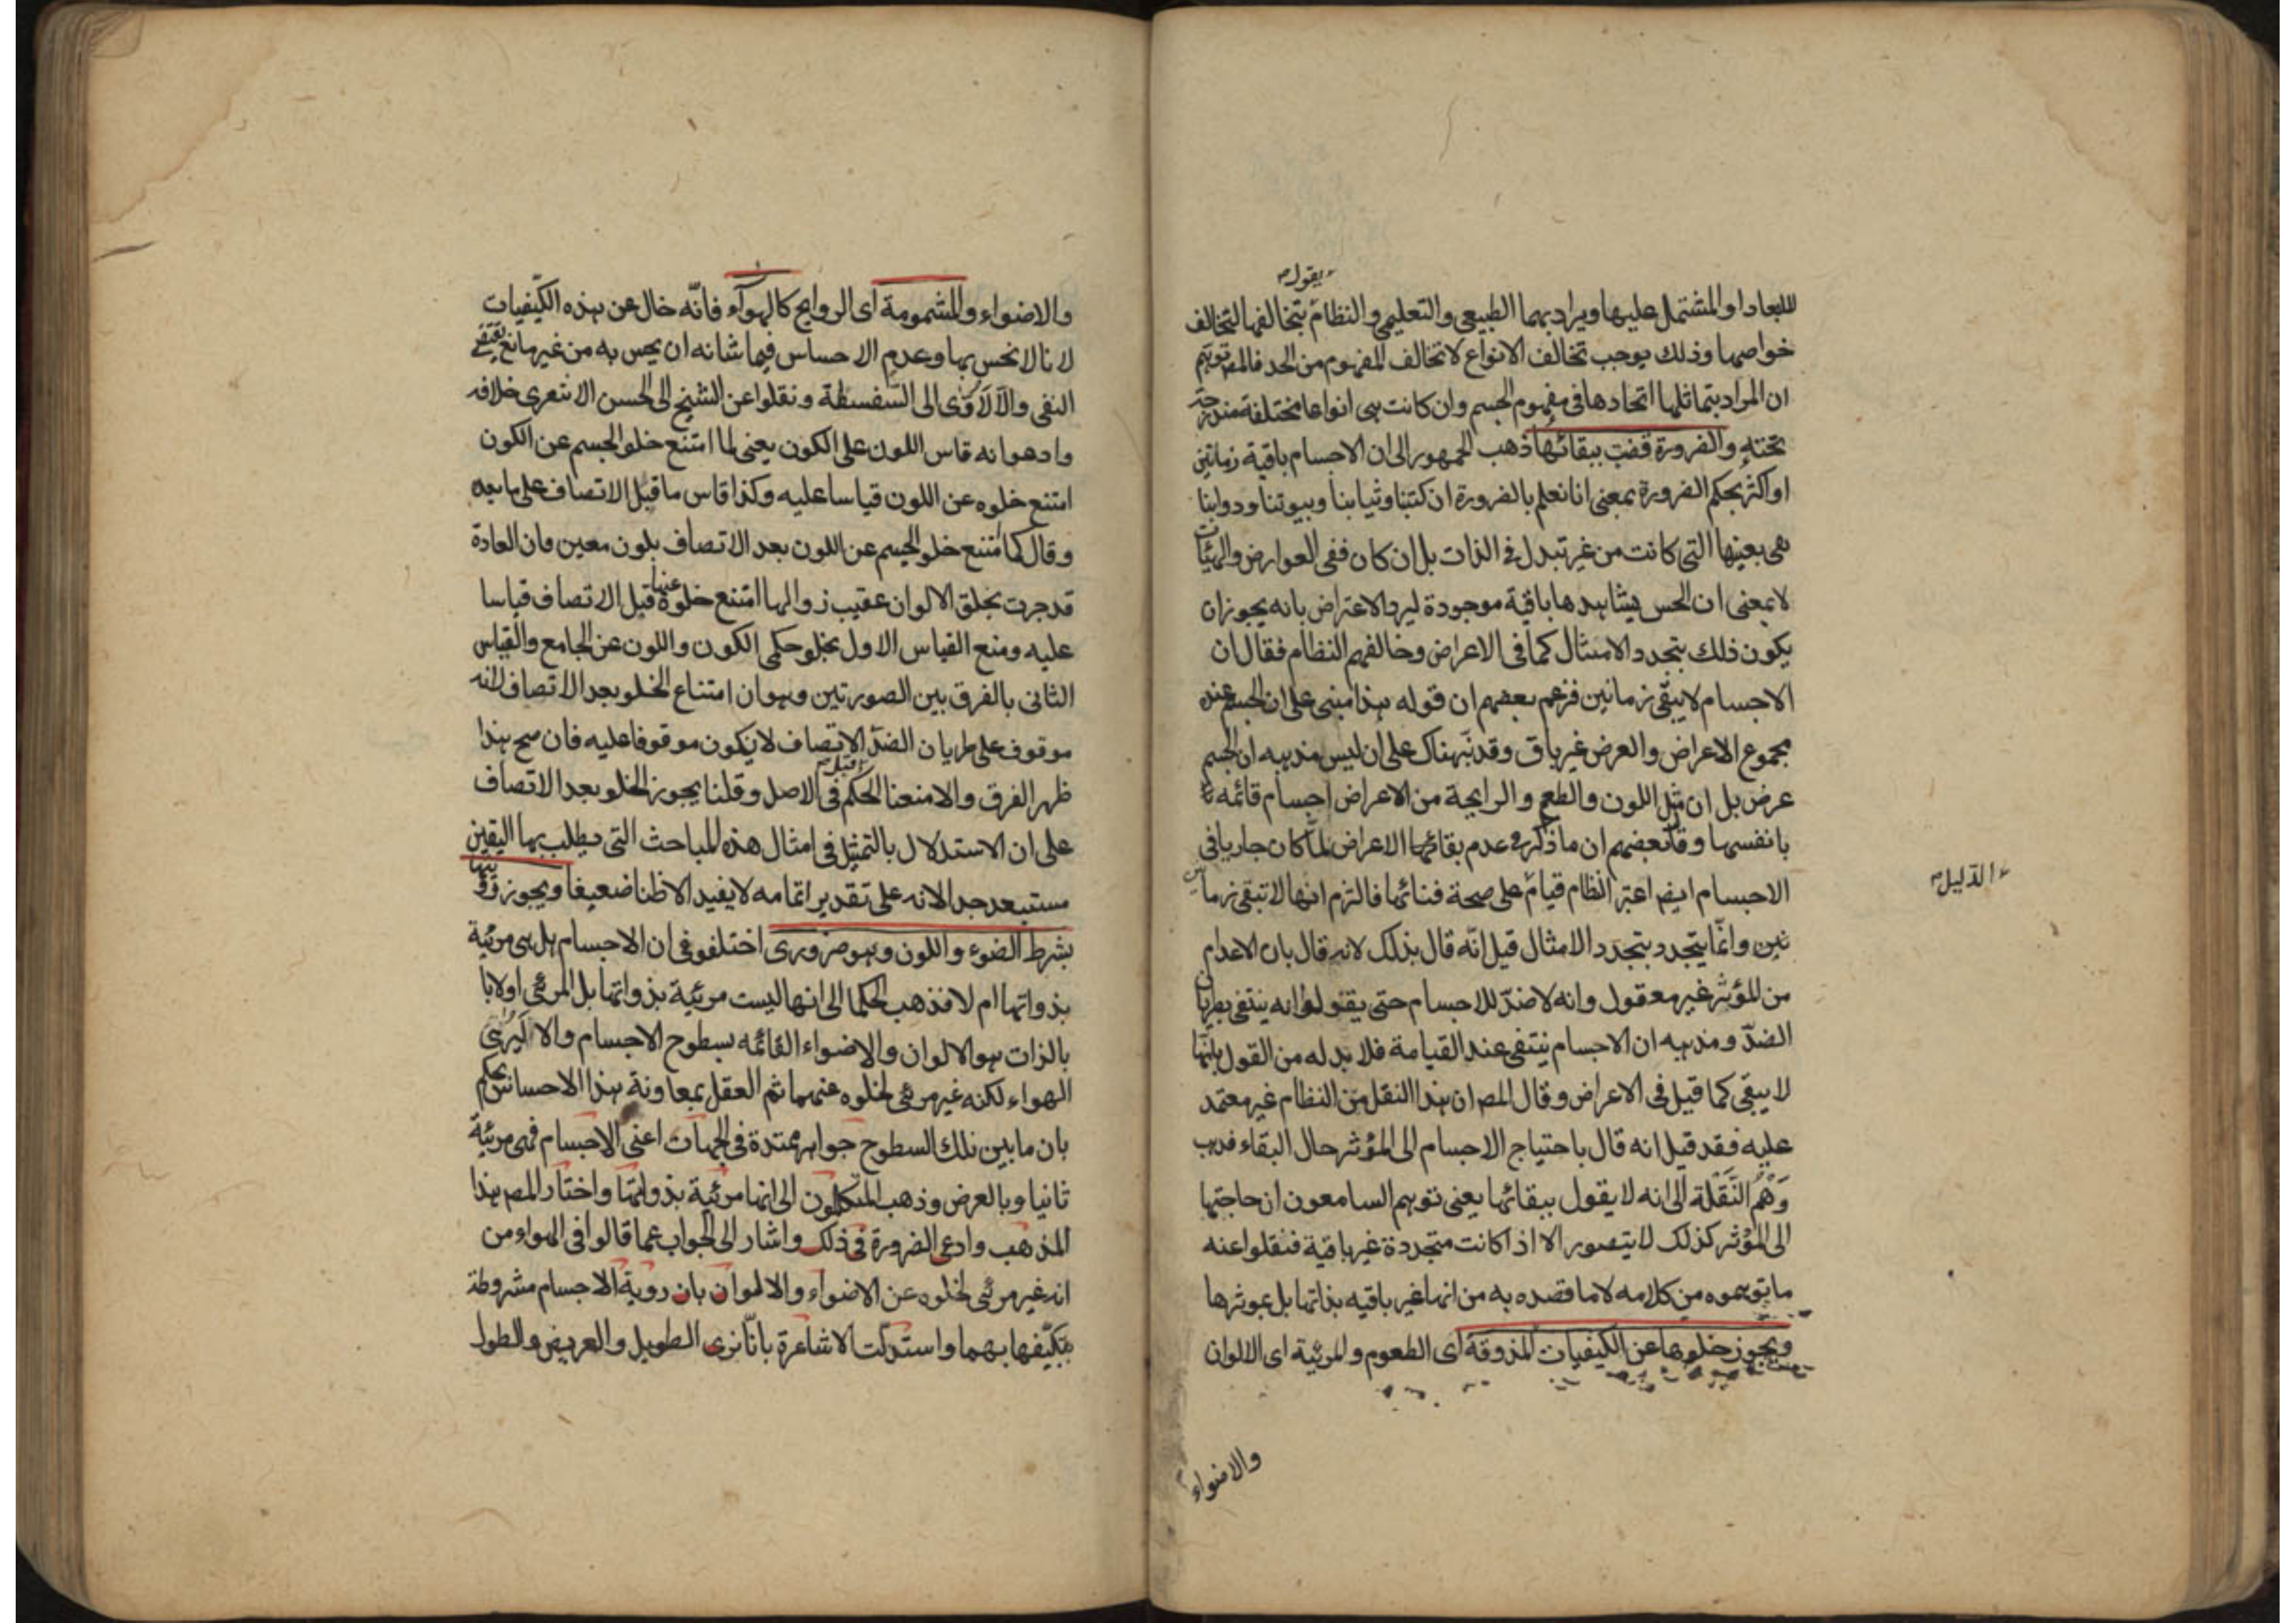 يقول
للابعاد او المشتمل عليها ويراد بهما الطبيعى والتعليمى والنظام بتخالفها لتخالف
خواصها وذلك يوجب تخالف الانواع لا تخالف المفهوم من الحد فالمص توهم
ان المراد بتماثلها اتحادها فى مفهوم الجسم وان كانت هى انواعا مختلفة مندرجة
تحته والضرورة قضت ببقائها ذهب الجمهور الى ان الاجسام باقية زمانين
او اكثر بحكم الضرورة بمعنى انا نعلم بالضرورة ان كتبنا وثيابنا وبيوتنا ودوابنا
هى بعينها التى كانت من غير تبدل فى الذات بل ان كان ففى العوارض والهيئات
لا بمعنى ان الحس يشاهدها باقية موجودة ليرد الاعتراض بانه يجوز ان
يكون ذلك بتجدد الامثال كما فى الاعراض وخالفهم النظام فقال ان
الاجسام لا يبقى زمانين فزعم بعضهم ان قوله هذا مبنى على ان الجسم عنده
مجموع الاعراض والعرض غير باق وقد نبهناك على ان ليس مذهبه ان الجسم
عرض بل ان مثل اللون والطعم والرايحة من الاعراض اجسام قائمة
بانفسها وقال بعضهم ان ما ذكر فى عدم بقائها الاعراض لما كان جاريا فى
الدليل
الاجسام ايضا اعتبر النظام قيام على صحة فنائها فالتزم انها لا تبقى زما
نين وانما يتجدد بتجدد الامثال قيل انه قال بذلك لانه قال بان الاعدام
من المؤثر غير معقول وانه لا ضد للاجسام حتى يقولوا انه ينتفى بطريان
الضد ومذهبه ان الاجسام ينتفى عند القيامة فلا بد له من القول بانها
لا يبقى كما قيل فى الاعراض وقال المص ان هذا النقل من النظام غير معتمد
عليه فقد قيل انه قال باحتياج الاجسام الى المؤثر حال البقاء فذهب
وَهْمُ النَّقَلة الى انه لا يقول ببقائها يعنى توهم السامعون ان حاجتها
الى المؤثر كذلك لا يتصور الا اذا كانت متجددة غير باقية فنقلوا عنه
ما توهموه من كلامه لا ما قصده به من انها غير باقيه بذاتها بل بموثرها
ويجوز خلوها عن الكيفيات المذوقة اى الطعوم والمرئية اى الالوان
والاضواء
والاضواء والمشمومة اى الروايح كالهوآء فانّه خال عن هذه الكيفيات
لانا لا نحس بها وعدم الاحساس فيما شانه ان يحس به من غير مانع يقتضى
النفى والّا لَأَدّى الى السّفسطة ونقلوا عن الشيخ ابى الحسن الاشعرى خلافه
وادهو انه قاس اللون على الكون يعنى لما امتنع خلو الجسم عن الكون
امتنع خلوه عن اللون قياسا عليه وكذا قاس ما قبل الاتصاف على ما بعده
وقال كما امتنع خلو الجسم عن اللون بعد الاتصاف بلون معين فان العادة
قد جرت بخلق الالوان عقيب زوالها امتنع خلوه عنها قبل الاتصاف قياسا
عليه ومنع القياس الاول بخلو حكمى الكون واللون عن الجامع والقياس
الثانى بالفرق بين الصورتين وهو ان امتناع الخلو بعد الاتصاف لانه
موقوف على طريان الضدّ الاتصاف لا يكون موقوفا عليه فان صح هذا
قبل
ظهر الفرق والا منعنا الحكم فى الاصل وقلنا يجوز الخلو بعد الاتصاف
على ان الاستدلال بالتمثيل فى امثال هذه المباحث التى يطلب بها اليقين
مستبعد جدا لانه على تقدير اتمامه لا يفيد الا ظنا ضعيفا ويجوز رؤيتها
بشرط الضوء واللون وهو ضرورى اختلفو فى ان الاجسام هل هى مرئية
بذواتها ام لا فذهب الحكما الى انها ليست مرئية بذواتها بل المرئى اولا با
بالذات هو الالوان والاضواء القائمه بسطوح الاجسام والا لَيُرى
الهواء لكنه غير مرئى لخلوه عنهما ثم العقل بمعاونة هذا الاحساس يحكم
بان ما بين تلك السطوح جواهر ممتدة فى الجهات اعنى الاجسام فهى مرئية
ثانيا وبالعرض وذهب المتكلمون الى انها مرئية بذواتها واختار المص هذا
المذهب وادعى الضرورة فى ذلك واشار الى الجواب عما قالوا فى الهواء من
انه غير مرئى لخلوه عن الاضواء والالوان بان روية الاجسام مشروطة
بتكيّفها بهما واستدلّت الاشاعرة بانّا نرى الطويل والعريض والطول